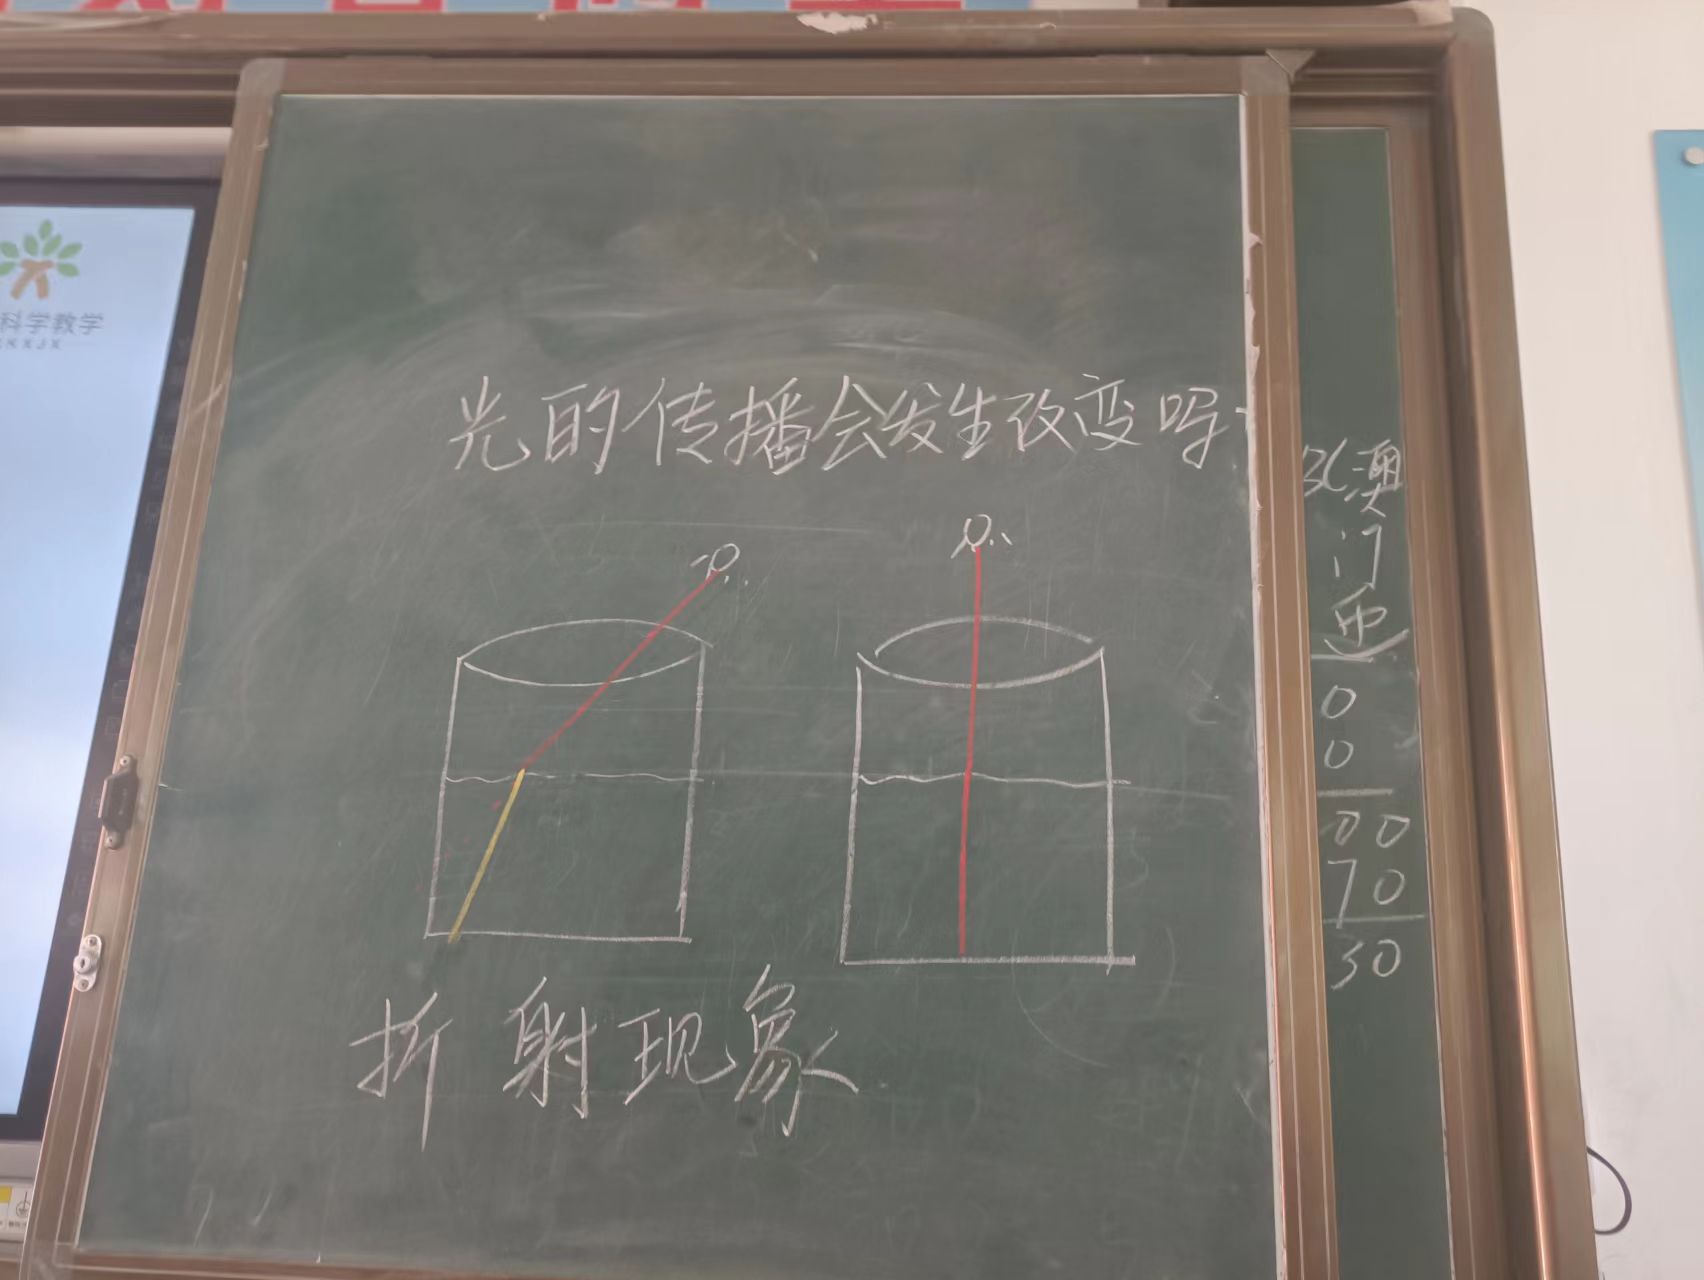 科学教学
光的传播会发生改变吗
折射现象
澳
门
0
0
00
70
30